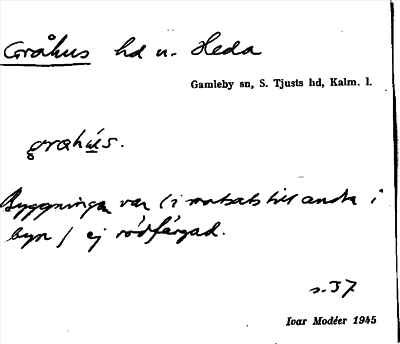 Gråhus hd u. Heda
Gamleby sn, S. Tjusts hd, Kalm. l.
grahús.
Byggningen var (i motsats till andra i
byn) ej rödfärgad.
s. 37
Ivar Modéer 1945